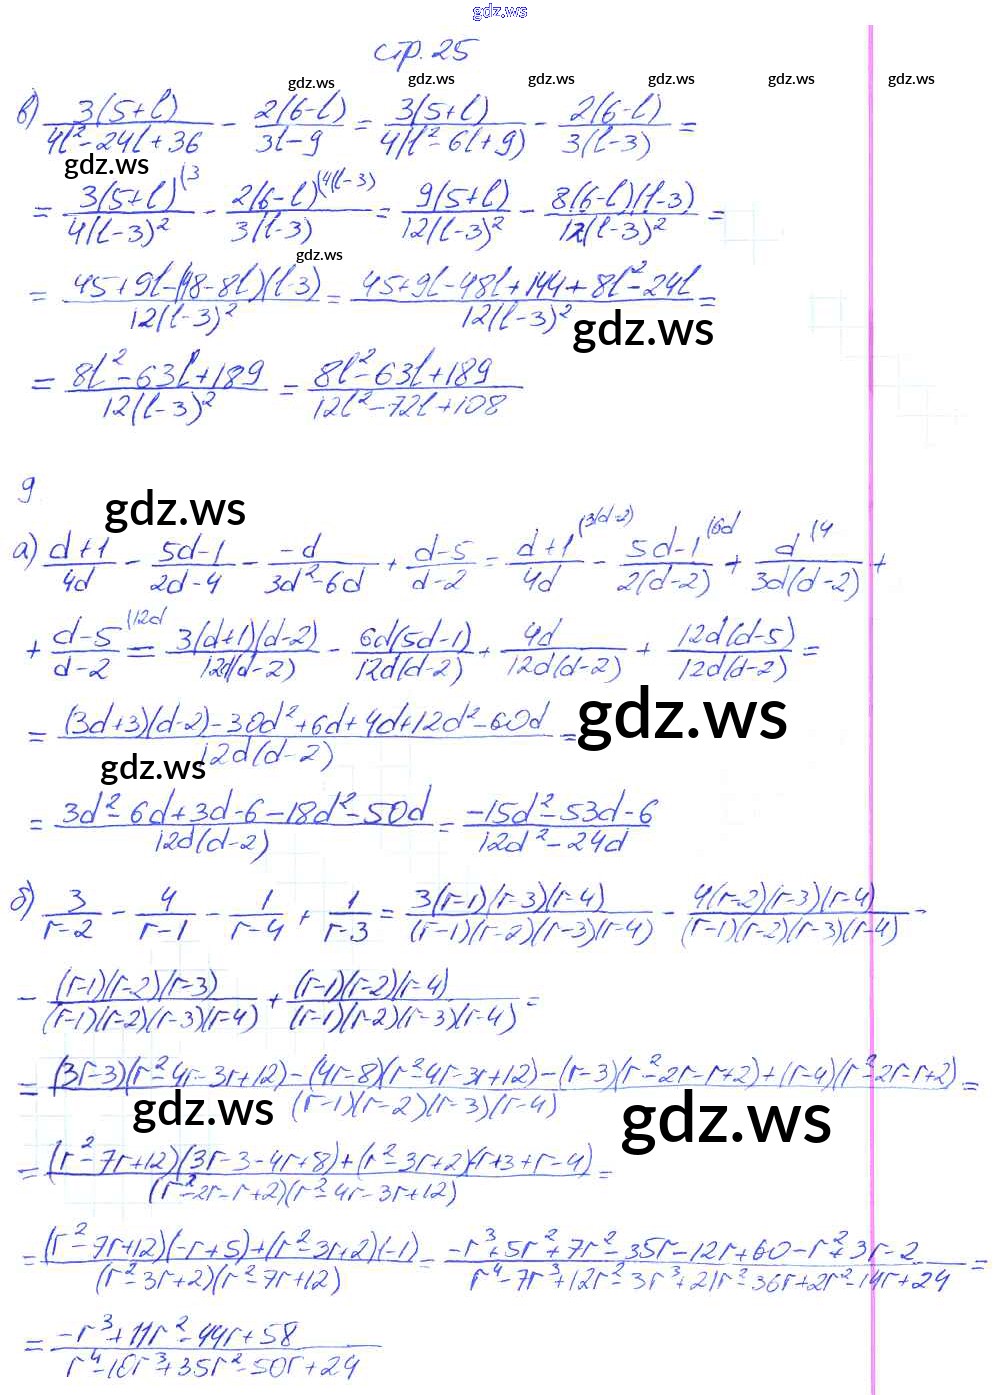 gdz.ws
стр. 25
gdz.ws gdz.ws gdz.ws gdz.ws gdz.ws gdz.ws
в) 3(5+l)/(4l²-24l+36) - 2(6-l)/(3l-9) = 3(5+l)/(4(l²-6l+9)) - 2(6-l)/(3(l-3)) =
gdz.ws
= 3(5+l)^(3/(4(l-3)²) - 2(6-l)^(4(l-3)/(3(l-3)) = 9(5+l)/(12(l-3)²) - 8(6-l)(l-3)/(12(l-3)²) =
gdz.ws
= (45+9l-(48-8l)(l-3))/(12(l-3)²) = (45+9l-48l+144+8l²-24l)/(12(l-3)²) =
gdz.ws
= (8l²-63l+189)/(12(l-3)²) = (8l²-63l+189)/(12l²-72l+108)
9
gdz.ws
а) (d+1)/(4d) - (5d-1)/(2d-4) - (-d)/(3d²-6d) + (d-5)/(d-2) = (d+1)^(3(d-2)/(4d) - (5d-1)^(6d/(2(d-2)) + d^(4/(3d(d-2)) +
+ (d-5)^(12d/(d-2) = 3(d+1)(d-2)/(12d(d-2)) - 6d(5d-1)/(12d(d-2)) + 4d/(12d(d-2)) + 12d(d-5)/(12d(d-2)) =
gdz.ws
= ((3d+3)(d-2)-30d²+6d+4d+12d²-60d)/(12d(d-2)) =
gdz.ws
= (3d²-6d+3d-6-18d²-50d)/(12d(d-2)) = (-15d²-53d-6)/(12d²-24d)
б) 3/(r-2) - 4/(r-1) - 1/(r-4) + 1/(r-3) = 3(r-1)(r-3)(r-4)/((r-1)(r-2)(r-3)(r-4)) - 4(r-2)(r-3)(r-4)/((r-1)(r-2)(r-3)(r-4)) -
- (r-1)(r-2)(r-3)/((r-1)(r-2)(r-3)(r-4)) + (r-1)(r-2)(r-4)/((r-1)(r-2)(r-3)(r-4)) =
= ((3r-3)(r²-4r-3r+12)-(4r-8)(r²-4r-3r+12)-(r-3)(r²-2r-r+2)+(r-4)(r²-2r-r+2))/((r-1)(r-2)(r-3)(r-4)) =
gdz.ws gdz.ws
= ((r²-7r+12)(3r-3-4r+8)+(r²-3r+2)(-r+3+r-4))/((r²-2r-r+2)(r²-4r-3r+12)) =
= ((r²-7r+12)(-r+5)+(r²-3r+2)(-1))/((r²-3r+2)(r²-7r+12)) = (-r³+5r²+7r²-35r-12r+60-r²+3r-2)/(r⁴-7r³+12r²-3r³+21r²-36r+2r²-14r+24) =
= (-r³+11r²-44r+58)/(r⁴-10r³+35r²-50r+24)